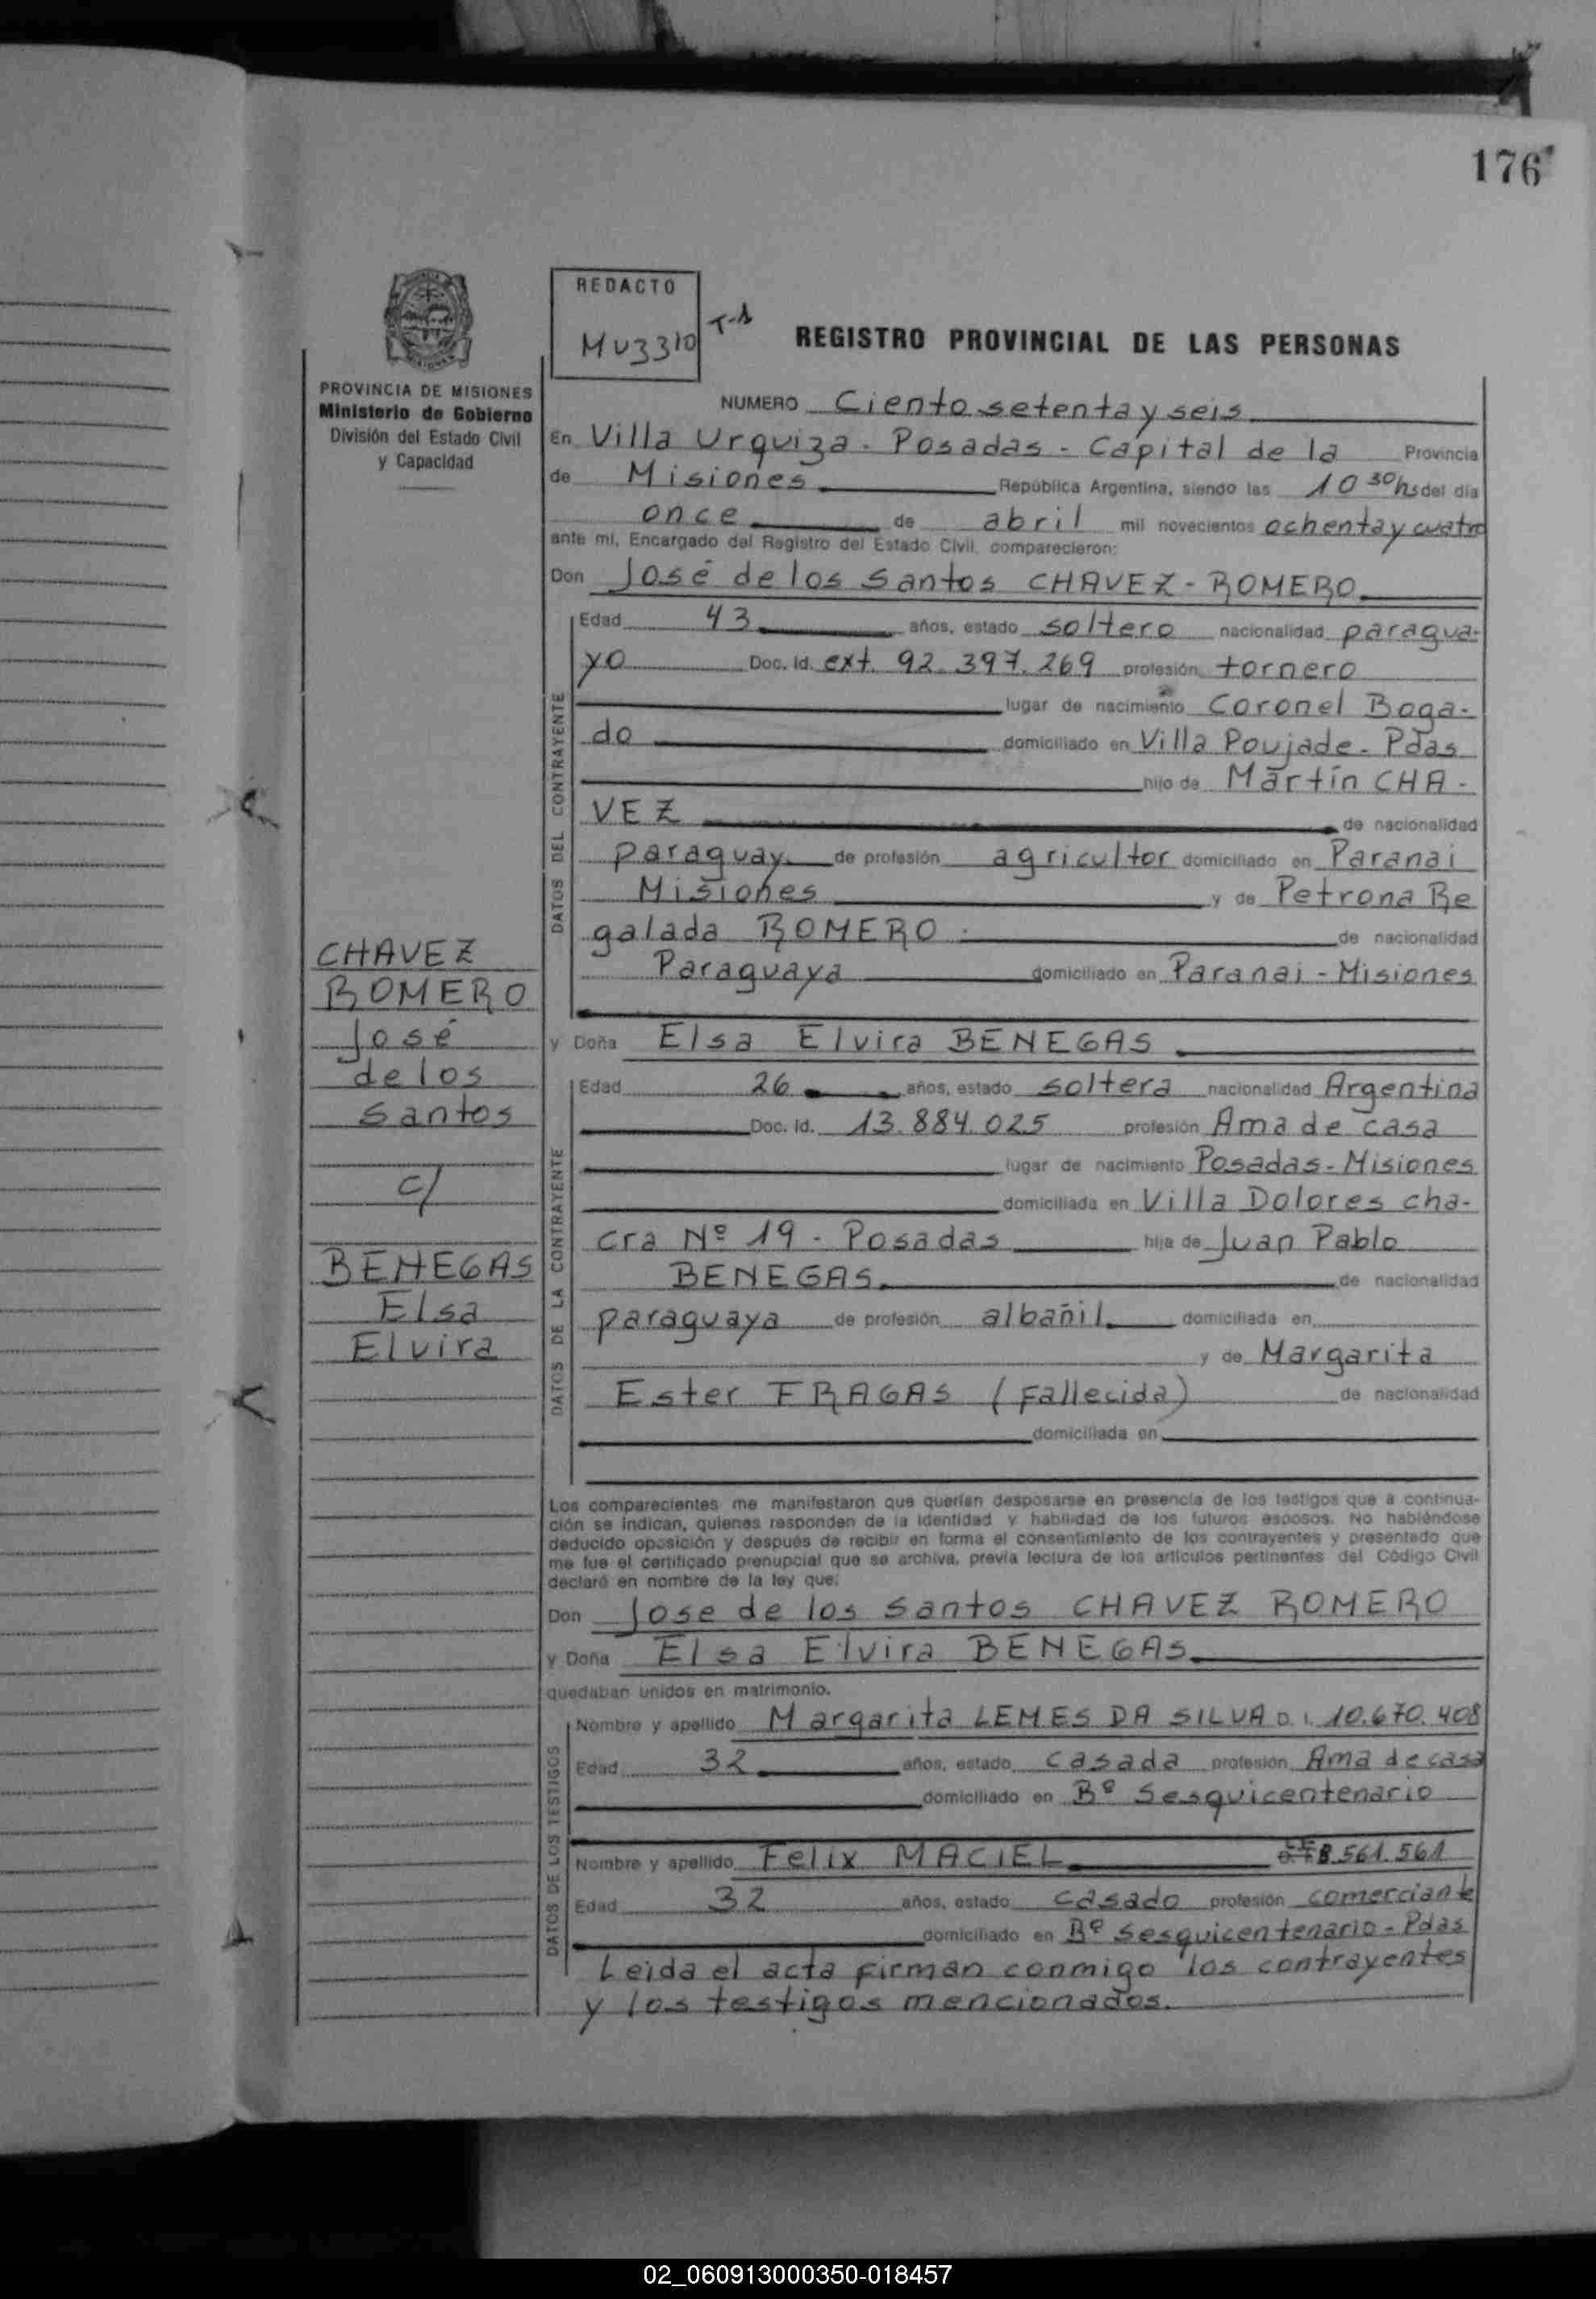 176
REDACTO
MU3310
T-1
REGISTRO PROVINCIAL DE LAS PERSONAS
PROVINCIA DE MISIONES
Ministerio de Gobierno
División del Estado Civil
y Capacidad
NUMERO Ciento setenta y seis
En Villa Urquiza - Posadas - Capital de la Provincia
de Misiones República Argentina, siendo las 10 30 hs del día
once de abril mil novecientos ochenta y cuatro
ante mí, Encargado del Registro del Estado Civil, comparecieron:
Don José de los Santos CHAVEZ - ROMERO
DATOS DEL CONTRAYENTE
Edad 43 años, estado soltero nacionalidad paragua-
yo Doc. Id. ext. 92.397.269 profesión tornero
lugar de nacimiento Coronel Boga-
do domiciliado en Villa Poujade - Pdas
hijo de Martín CHA-
VEZ de nacionalidad
paraguay. de profesión agricultor domiciliado en Paranai
Misiones y de Petrona Re
galada ROMERO. de nacionalidad
Paraguaya domiciliado en Paranai - Misiones
CHAVEZ
ROMERO
José
de los
Santos
c/
BENEGAS
Elsa
Elvira
y Doña Elsa Elvira BENEGAS
DATOS DE LA CONTRAYENTE
Edad 26 años, estado soltera nacionalidad Argentina
Doc. Id. 13.884.025 profesión Ama de casa
lugar de nacimiento Posadas - Misiones
domiciliada en Villa Dolores cha-
cra Nº 19 - Posadas hija de Juan Pablo
BENEGAS de nacionalidad
paraguaya de profesión albañil domiciliada en
y de Margarita
Ester FRAGAS (Fallecida) de nacionalidad
domiciliada en
Los comparecientes me manifestaron que querían desposarse en presencia de los testigos que a continua-
ción se indican, quienes responden de la identidad y habilidad de los futuros esposos. No habiéndose
deducido oposición y después de recibir en forma el consentimiento de los contrayentes y presentado que
me fue el certificado prenupcial que se archiva, previa lectura de los artículos pertinentes del Código Civil
declaré en nombre de la ley que:
Don Jose de los Santos CHAVEZ ROMERO
y Doña Elsa Elvira BENEGAS
quedaban unidos en matrimonio.
DATOS DE LOS TESTIGOS
Nombre y apellido Margarita LEMES DA SILVA D. I. 10.670.408
Edad 32 años, estado casada profesión Ama de casa
domiciliado en Bº Sesquicentenario
Nombre y apellido Felix MACIEL 8.561.561
Edad 32 años, estado casado profesión comerciante
domiciliado en Bº Sesquicentenario - Pdas
Leida el acta firman conmigo los contrayentes
y los testigos mencionados.
02_060913000350-018457